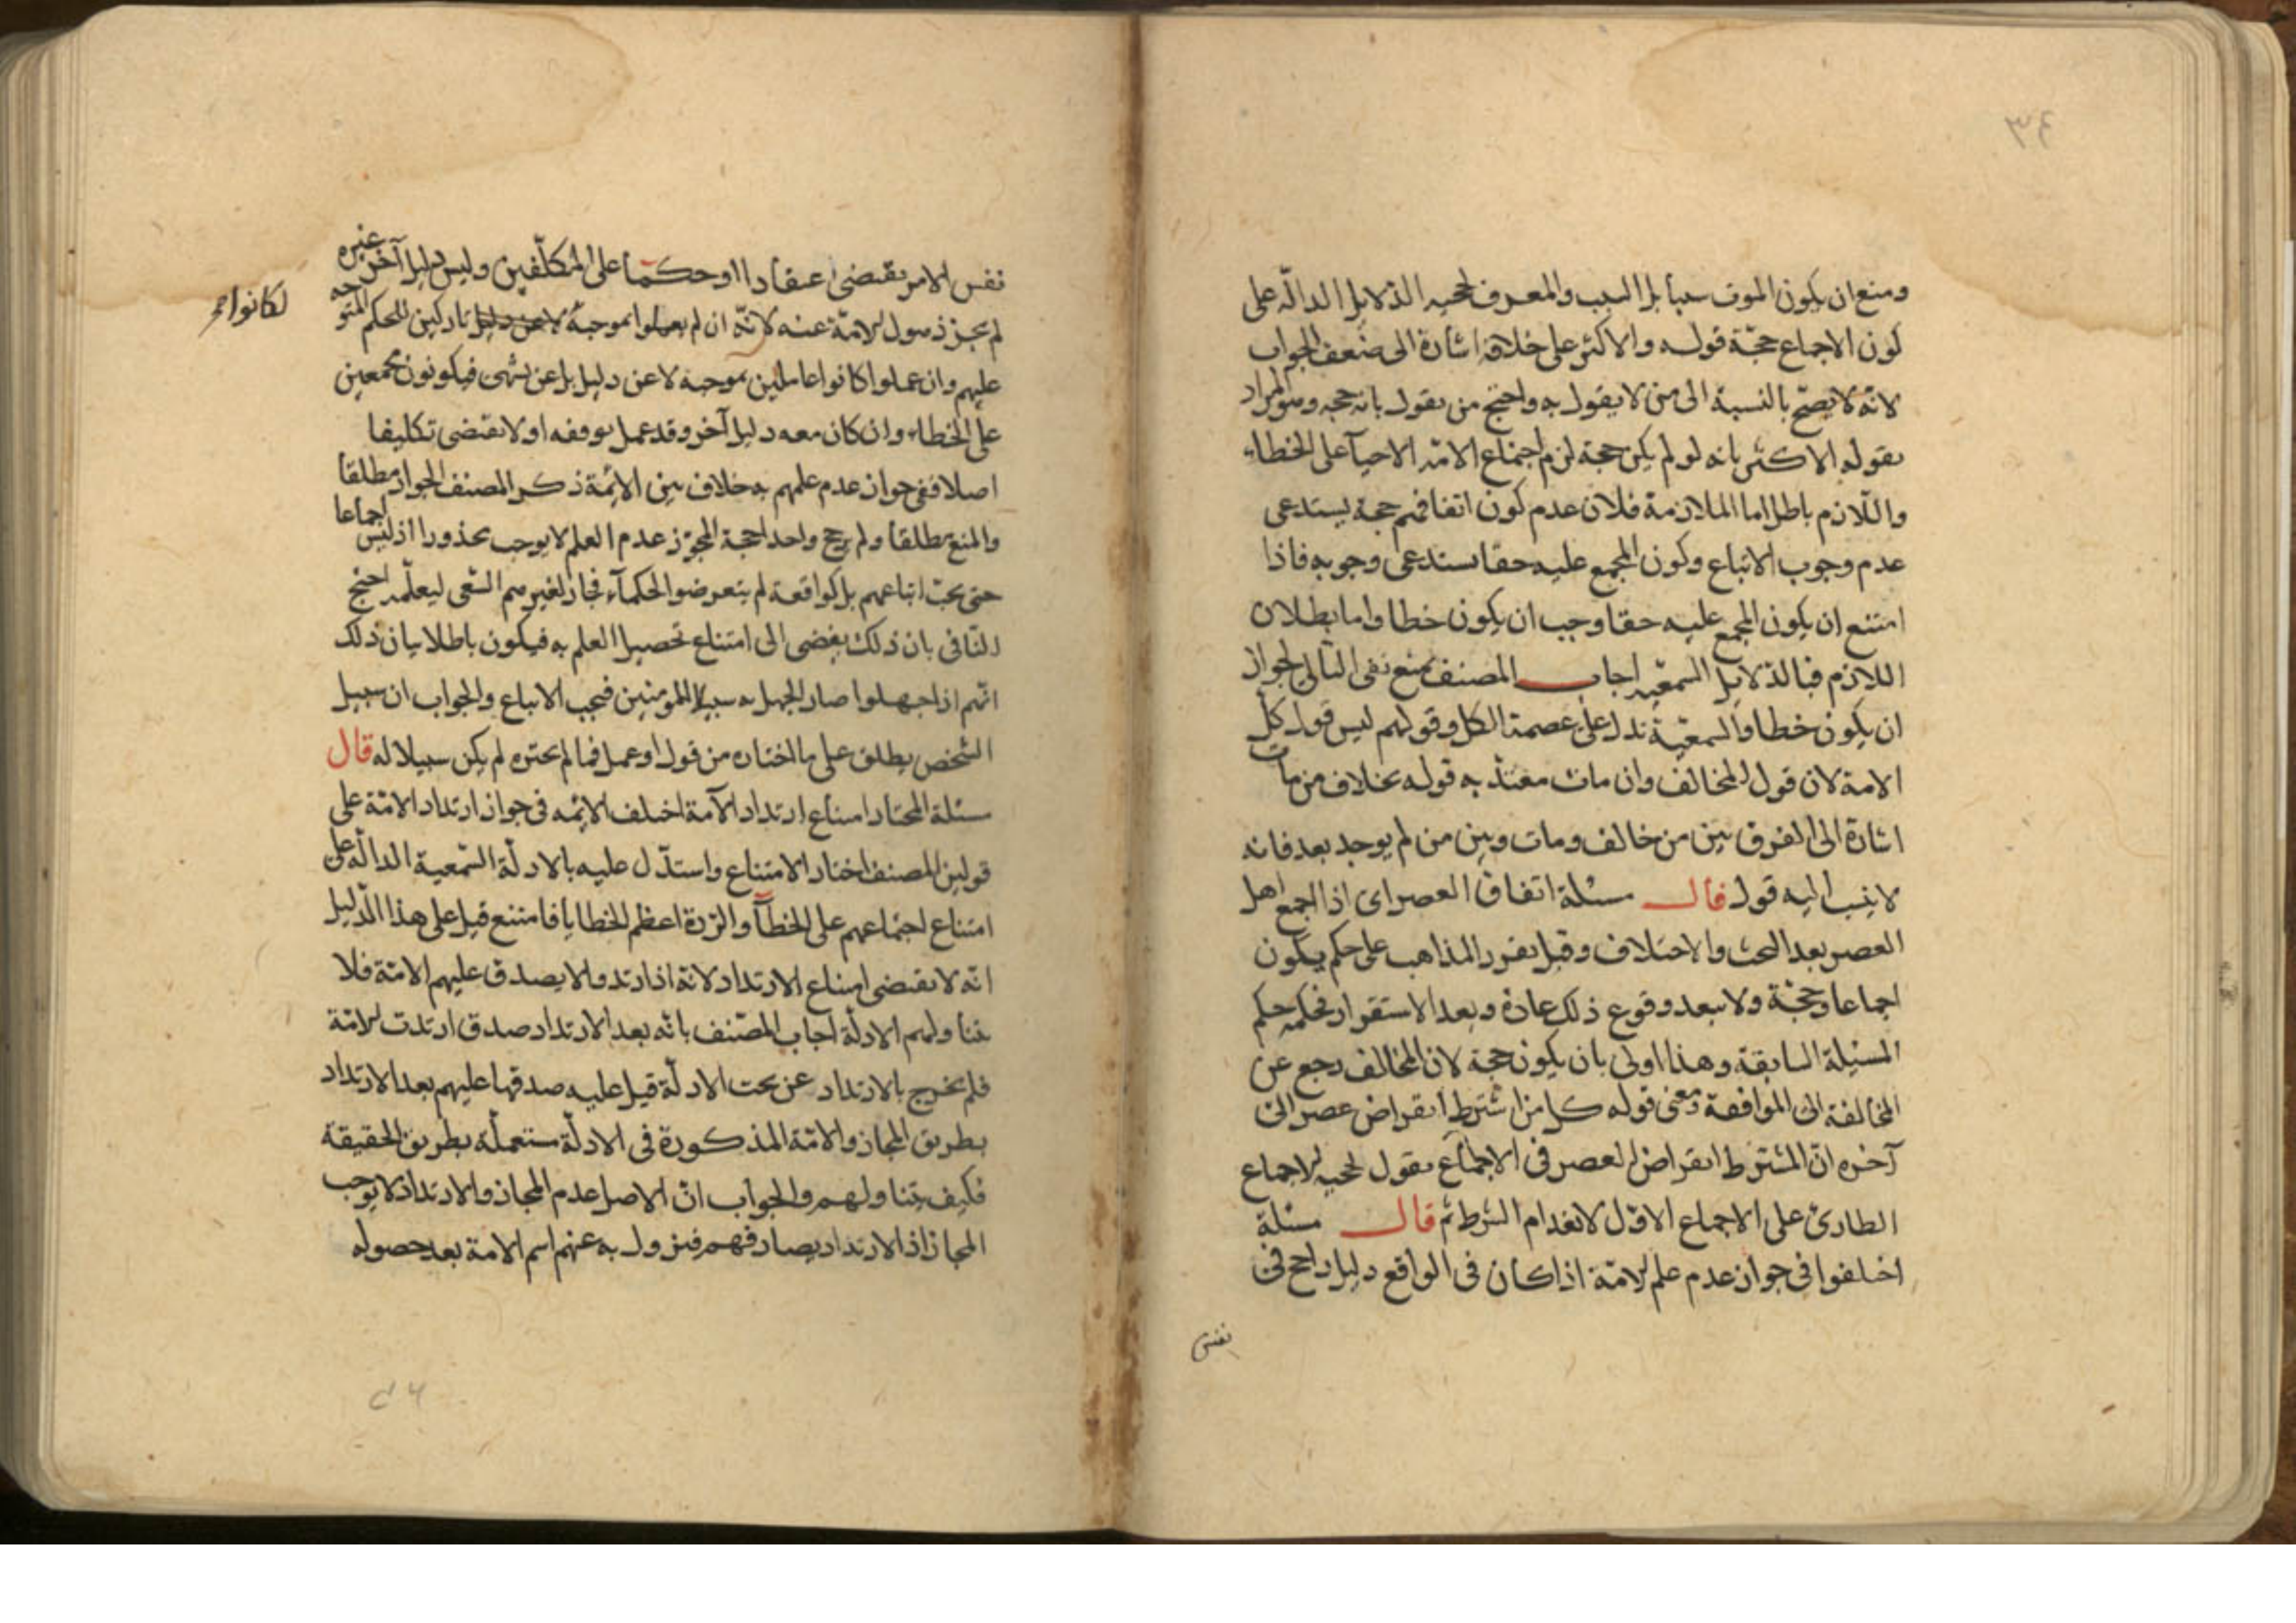 ٣٤
ومنع ان يكون الموت سببا بل السبب والمعرف لحجيه الدلايل الدالّة على
كون الاجماع حجّة قوله والاكثر على خلافه اشارة الى ضعف الجواب
لانّه لا يصحّ بالنسبة الى من لا يقول به واحتج من يقول بانه حجه وهو المراد
بقوله الاكثر بانه لو لم يكن حجة لزم اجتماع الامّة الاحيآ على الخطاء
واللّازم باطل اما الملازمة فلان عدم كون اتفاقهم حجة يستدعى
عدم وجوب الاتباع وكون المجمع عليه حقا يستدعى وجوبه فاذا
امتنع ان يكون المجمع عليه حقا وجب ان يكون خطا واما بطلان
اللازم فبالدلايل السمعيّه اجاب المصنف بمنع نفى التالى لجواز
ان يكون خطا والسمعيّة تدل على عصمة الكل وقولهم ليس قول كلّ
الامة لان قول المخالف وان مات معتدّ به قوله بخلاف من مات
اشارة الى الفرق بين من خالف ومات وبين من لم يوجد بعد فانه
لا ينسب اليه قول قال مسئلة اتفاق العصر اى اذا اجمع اهل
العصر بعد البحث والاختلاف وقبل تقرر المذاهب على حكم يكون
اجماعا وحجّة ولا يبعد وقوع ذلك عادة وبعد الاستقرار فحكمه حكم
المسئلة السابقة وهذا اولى بان يكون حجة لان المخالف رجع عن
المخالفة الى الموافقة ومعنى قوله كل من اشترط انقراض عصر الى
آخره انّ المشترط انقراض العصر فى الاجماع يقول لحجيه الاجماع
الطارئ على الاجماع الاوّل لانعدام الشرط ثم قال مسئلة
اختلفوا فى جواز عدم علم الامّة اذا كان فى الواقع دليل راجح فى
نفس
نفس الامر يقتضى اعتقادا او حكمًا على المكلّفين وليس دليل آخر غيره
لم يجز ذهول الامّة عنه لانّه ان لم يعملوا بموجبه لا عن دليل تاركين للحكم المتوجه
لكانوا
عليهم وان عملوا كانوا عاملين بموجبه لا عن دليل بل عن تشهى فيكونون مجمعين
على الخطاء وان كان معه دليل آخر وقد عمل بوفقه او لا يقتضى تكليفا
اصلا ففى جواز عدم علمهم به خلاف بين الائمّة ذكر المصنف الجواز مطلقا
والمنع مطلقا ولم يرجح واحدا حجة المجوّز عدم العلم لا يوجب محذورا اذ ليس اجماعا
حتى يجب اتباعهم بل كواقعة لم يتعرضوا لحكمها فجاز لغيرهم السّعى ليعلمه احتج
النّافى بان ذلك يفضى الى امتناع تحصيل العلم به فيكون باطلا بيان ذلك
انّهم اذا جهلوا صار الجهل به سبيلا للمومنين فيجب الاتباع والجواب ان سبيل
الشّخص يطلق على ما اختاره من قول او عمل فما لم يختره لم يكن سبيلا له قال
مسئلة المختار امتناع ارتداد الامة اختلف الائمه فى جواز ارتداد الامّة على
قولين المصنف اختار الامتناع واستدّل عليه بالادلّة السّمعية الدالّة على
امتناع اجتماعهم على الخطآ والرّدة اعظم الخطايا فامتنع قيل على هذا الدّليل
انّه لا يقتضى امتناع الارتداد لانّه اذا ارتدوا لا يصدق عليهم الامّة فلا
يتناولهم الادلّة اجاب المصّنف بانّه بعد الارتداد صدق ارتدت الامّة
فلم يخرج بالارتداد عن تحت الادلّة قيل عليه صدقها عليهم بعد الارتداد
بطريق المجاز والامّة المذكورة فى الادلّة مستعملة بطريق الحقيقة
فكيف يتناولهم والجواب انّ الاصل عدم المجاز والارتداد لا يوجب
المجاز اذ الارتداد يصادفهم فيزول به عنهم اسم الامة بعد حصوله